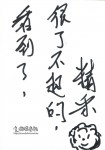 看到了，
很了不起的，
精采